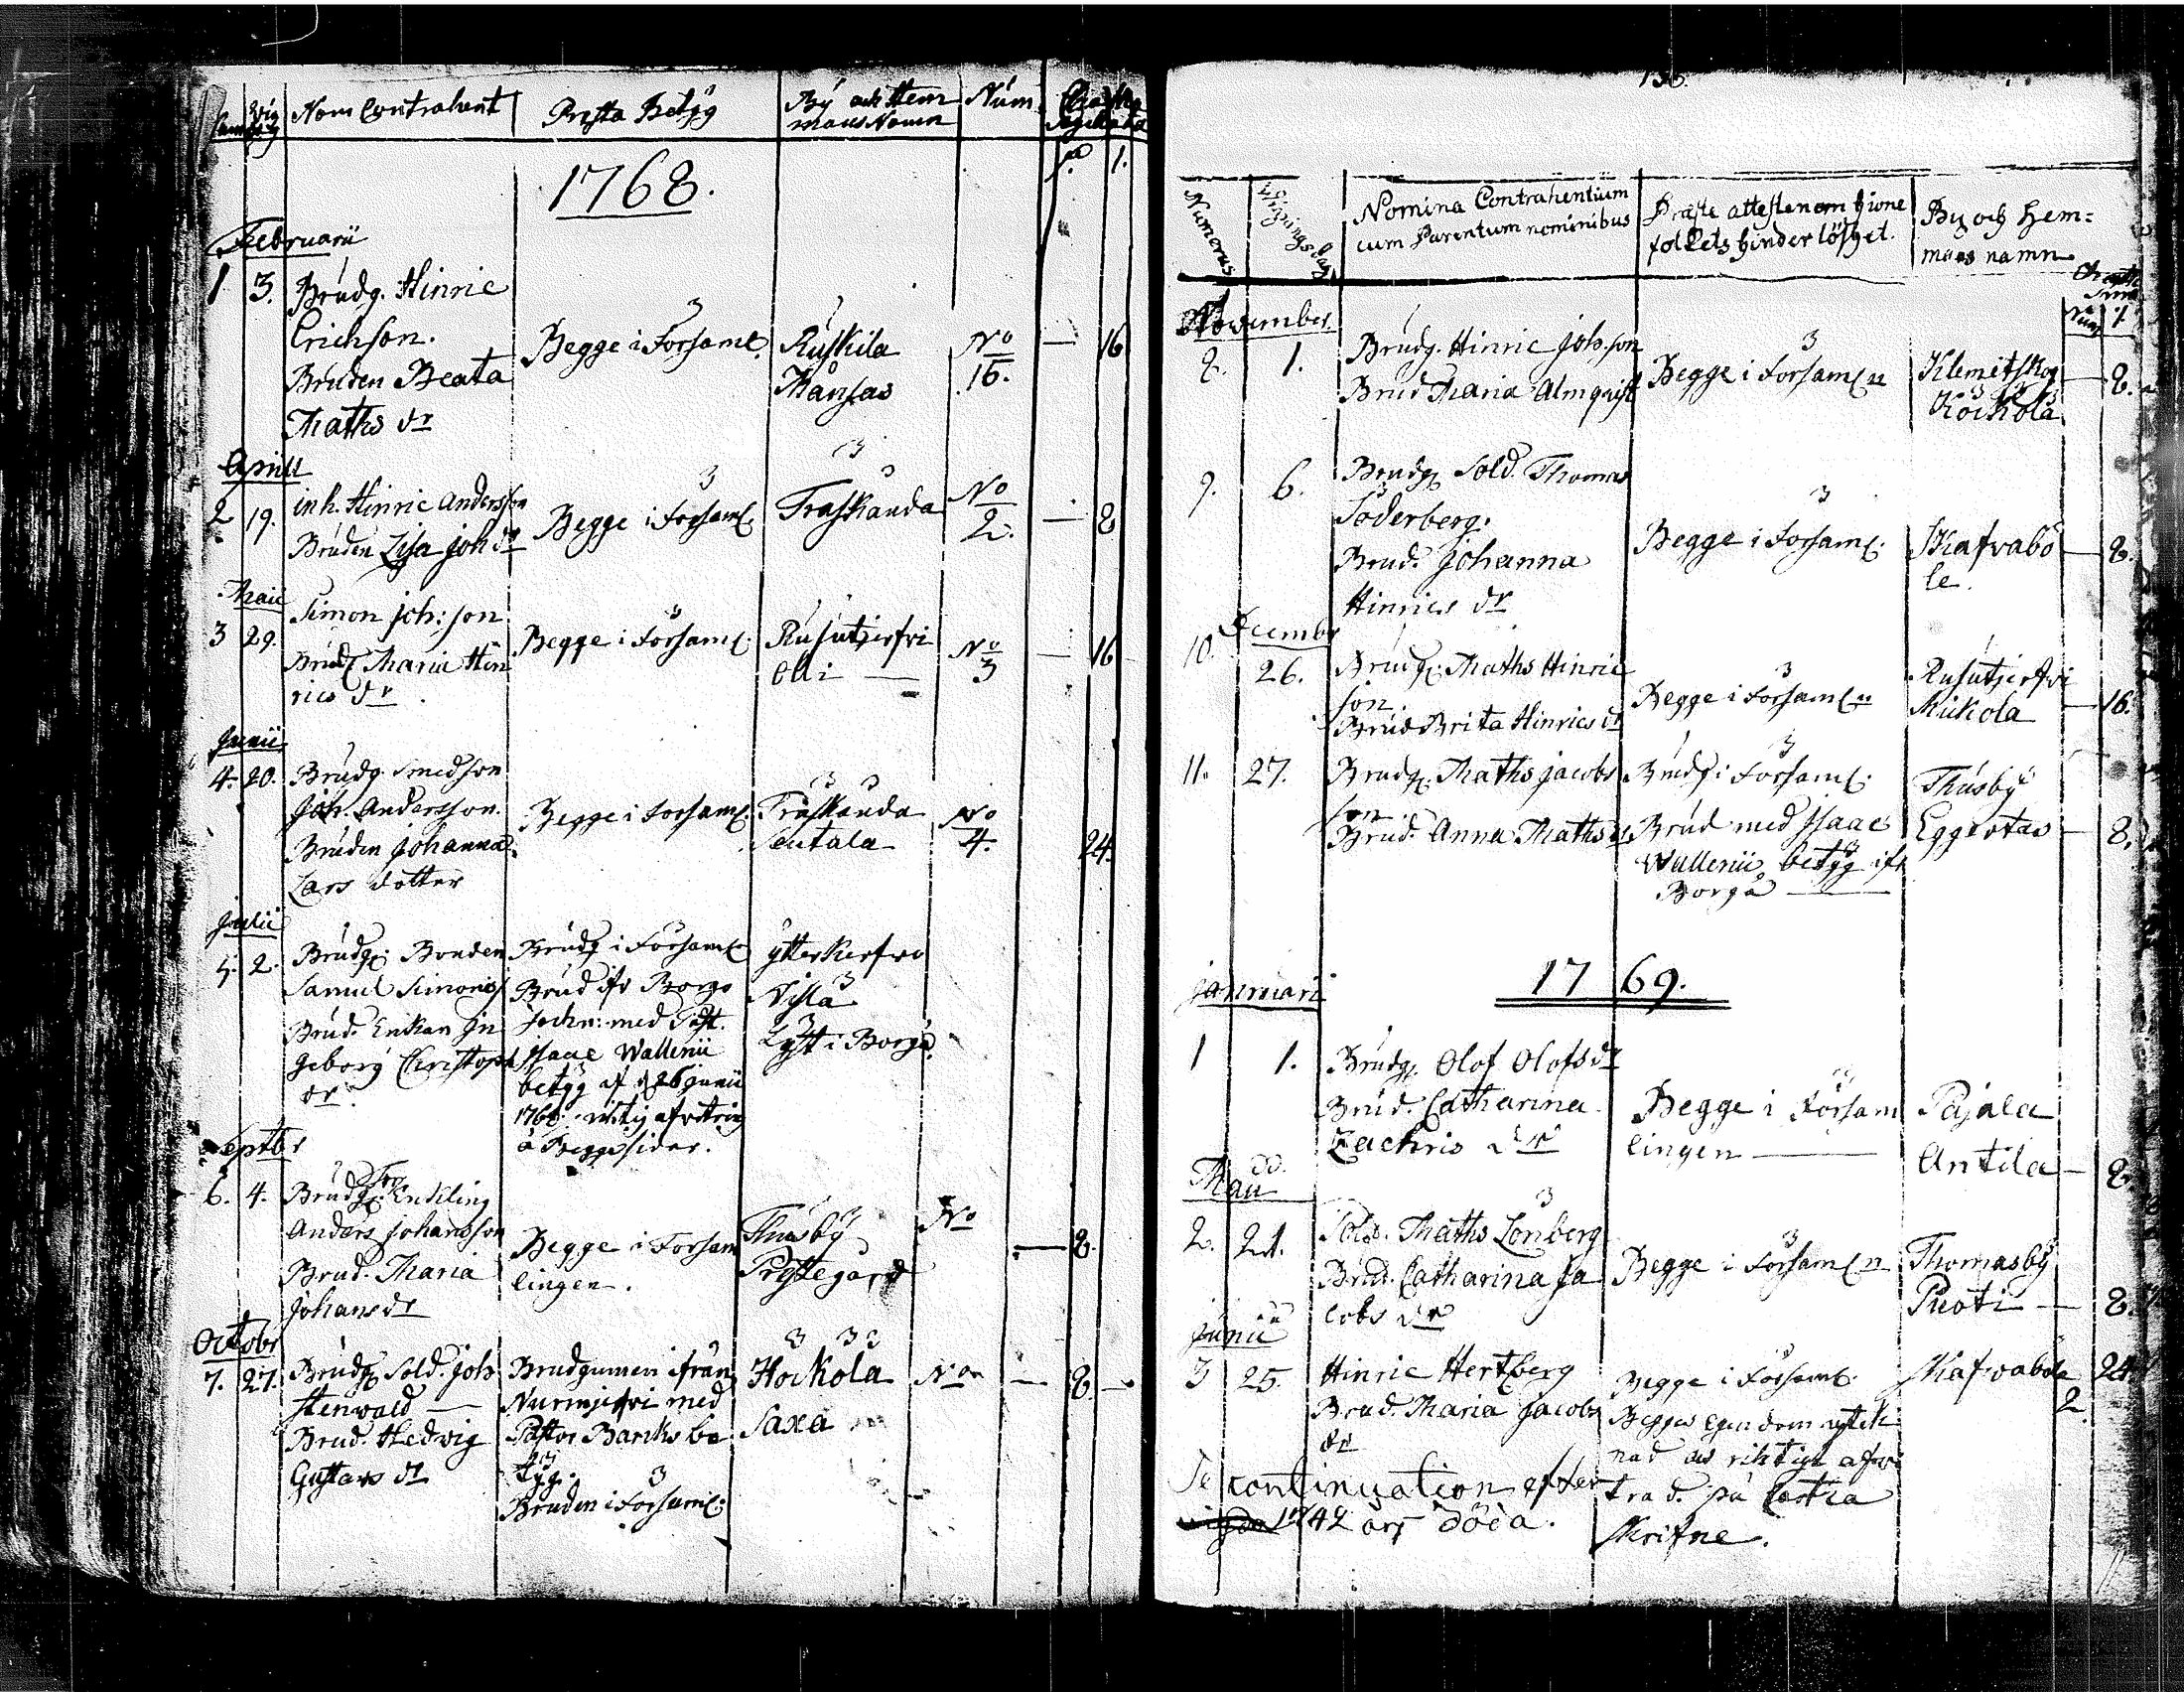 Nom Contrahent
Presta Betyg
By och Hem
mans Namn
Num
1768.
Februarii
1 3. Brudg. Hinric
Erichson.
Bruden Beata
Maths dr
Begge i Forsaml.
Ruskila
Månsas
No
16.
— 16
Aprill
2 19. inh. Hinric Andersson
Bruden Lisa Joh dr
Begge i Forsaml.
Traskanda
No
2.
— 8
Maii
3 29. Simon Joh: son
Brud Maria Hin
rics dr.
Begge i Forsaml.
Rusutjerfvi
Olli —
No
3
— 16
Junii
4. 20. Brudg. Smedson
Joh. Andersson.
Bruden Johanna
Lars dotter
Begge i Forsaml.
Träskanda
Seutala
No
4.
24.
Julii
5. 2. Brudg. Bonden
Samuel Simons
Brud. Enkan In
geborg Christoph
dr.
Brudg i Församl
Brud ifr Borgo
Sochn: med Past.
Isaac Wallenii
betyg af d 26 Junii
1768.
å Begge sidor.
Ytterkerfvo
Nissla
i Borgå.
Septbr
6. 4. Brudg. Enkling
Anders Johansson
Brud. Maria
Johans dr
Begge i Forsam
lingen.
Thusby
Prestegård
No
— 8.
Octobr
7. 27. Brudg. Sold. Joh
Stenwald —
Brud. Hedvig
Gustavs dr
Brudgumen ifrån
Nurmijerfvi med
Pastor Banks be
tyg.
Bruden i Forsaml:
Hockola
Saxa
No
— 8. —
136.
Numerus
Wignings dag
Nomina Contrahentium
cum Parentum nominibus
Präste attesten om hione
folkets hinderlöshet.
By och Hem=
mans namn
November.
8. 1. Brudg. Hinric Joh. son
Brud Maria Almqvist
Begge i Forsaml n
Klemetskog
Köckölä
— 8.
9. 6. Brudg. Sold. Thomas
Söderberg.
Brud. Johanna
Hinrics dr
Begge i Forsaml.
Skafvabö
le.
— 8.
Decembr
10. 26. Brudg. Maths Hinric
son.
Brud Brita Hinrics dr
Begge i Forsaml n
Rusutjerfvi
Mickola
— 16.
11. 27. Brudg. Maths Jacobs
son
Brud. Anna Maths dr
Brudg i Församl.
Brud med Isaac
Wallenii betyg ifr
Borgå —
Thusby
Eggertas
— 8.
1769.
Januari
1 1. Brudg. Olof Olofs dr
Brud. Catharina
Zachris dr
Begge i Försam
lingen —
Pajala
Antila — 8.
Maii
2. 21. Sold. Maths Lonberg
Brud. Catharina Ja
cobs dr
Begge i Forsaml n
Thomasby
Puoti — 8.
Junii
3 25. Hinric Hertberg
Brud. Maria Jacobs
dr
Begge i Församl.
Begges egendom uptek
nad och riktigt afvi
trad. på
skrifne.
Skafvabole
24.
2.
Se continuation efter
1742 års döda.